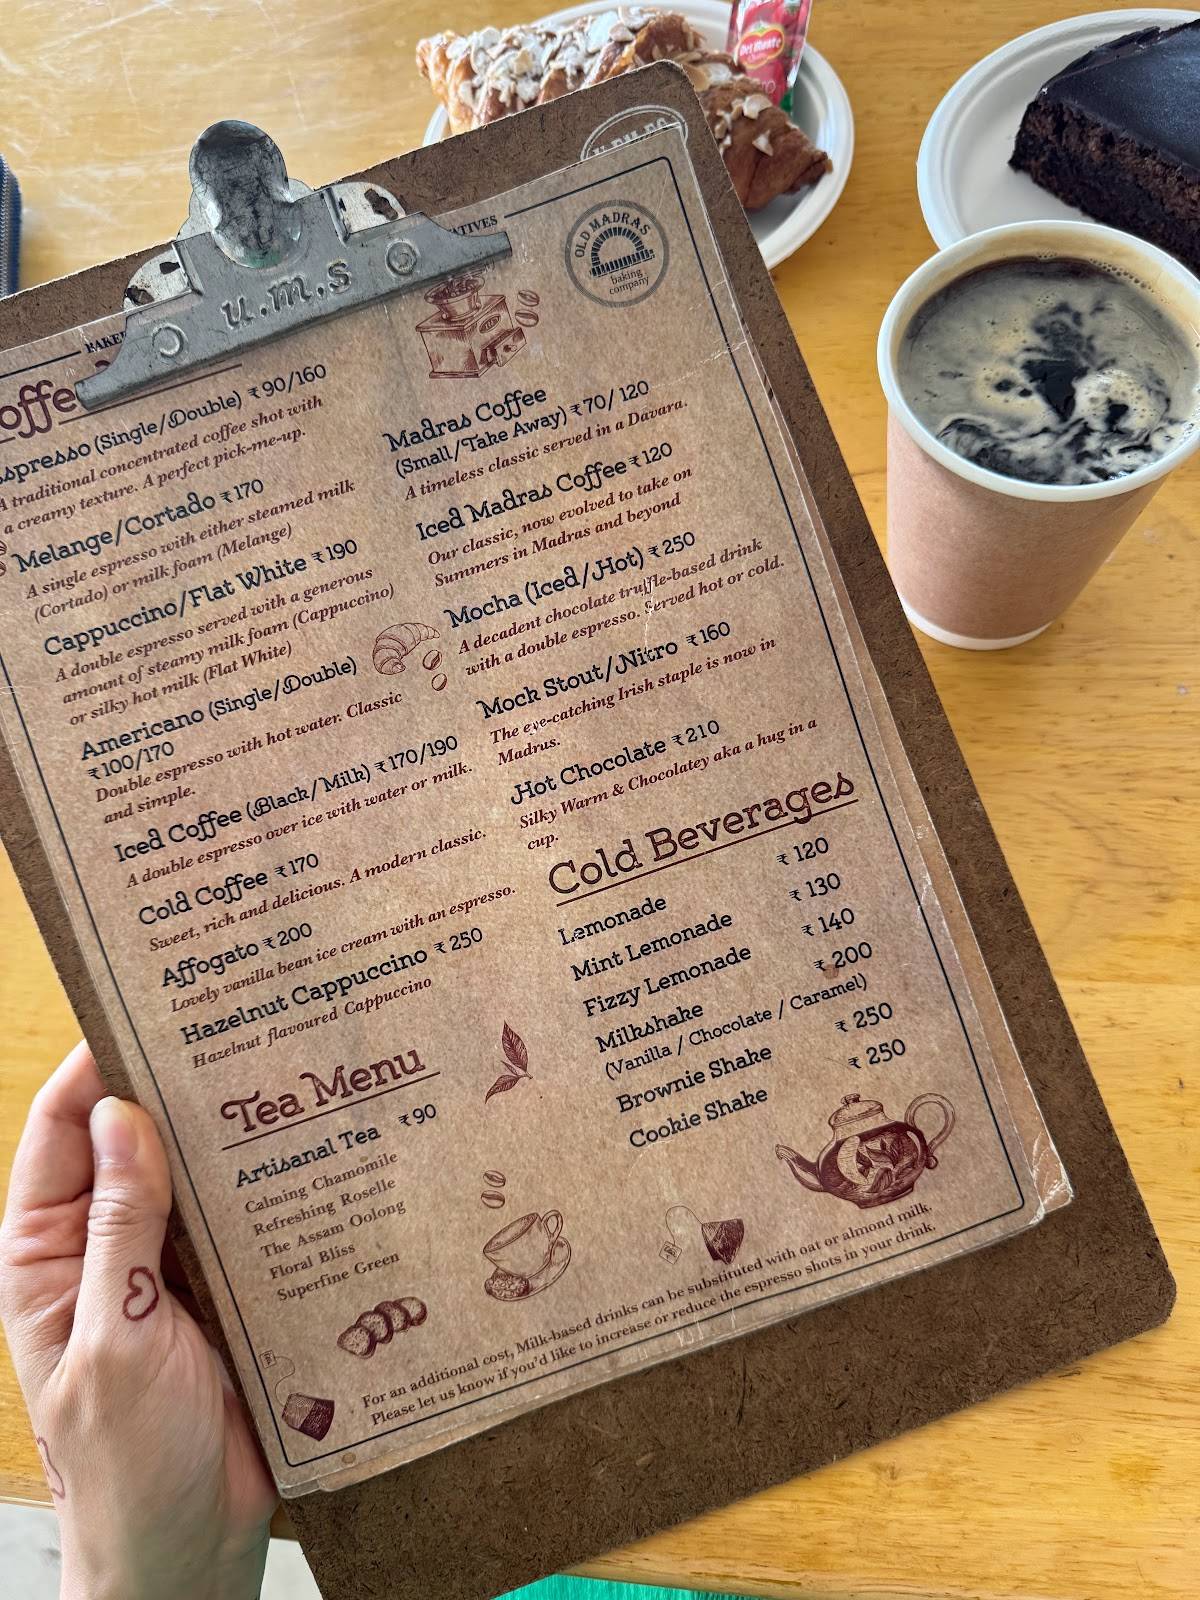 Del Monte
u.m.s
OLD MADRAS
baking
company
Espresso (Single/Double) ₹ 90/160
A traditional concentrated coffee shot with
a creamy texture. A perfect pick-me-up.
Melange/Cortado ₹ 170
A single espresso with either steamed milk
(Cortado) or milk foam (Melange)
Cappuccino/Flat White ₹ 190
A double espresso served with a generous
amount of steamy milk foam (Cappuccino)
or silky hot milk (Flat White)
Americano (Single/Double)
₹ 100/170
Double espresso with hot water. Classic
and simple.
Iced Coffee (Black/Milk) ₹ 170/190
A double espresso over ice with water or milk.
Cold Coffee ₹ 170
Sweet, rich and delicious. A modern classic.
Affogato ₹ 200
Lovely vanilla bean ice cream with an espresso.
Hazelnut Cappuccino ₹ 250
Hazelnut flavoured Cappuccino
Tea Menu
Artisanal Tea ₹ 90
Calming Chamomile
Refreshing Roselle
The Assam Oolong
Floral Bliss
Superfine Green
Madras Coffee
(Small/Take Away) ₹ 70/ 120
A timeless classic served in a Davara.
Iced Madras Coffee ₹ 120
Our classic, now evolved to take on
Summers in Madras and beyond
Mocha (Iced/Hot) ₹ 250
A decadent chocolate truffle-based drink
with a double espresso. Served hot or cold.
Mock Stout/Nitro ₹ 160
The eye-catching Irish staple is now in
Madrus.
Hot Chocolate ₹ 210
Silky Warm & Chocolatey aka a hug in a
cup.
Cold Beverages
Lemonade ₹ 120
Mint Lemonade ₹ 130
Fizzy Lemonade ₹ 140
Milkshake ₹ 200
(Vanilla / Chocolate / Caramel)
Brownie Shake ₹ 250
Cookie Shake ₹ 250
For an additional cost, Milk-based drinks can be substituted with oat or almond milk.
Please let us know if you'd like to increase or reduce the espresso shots in your drink.